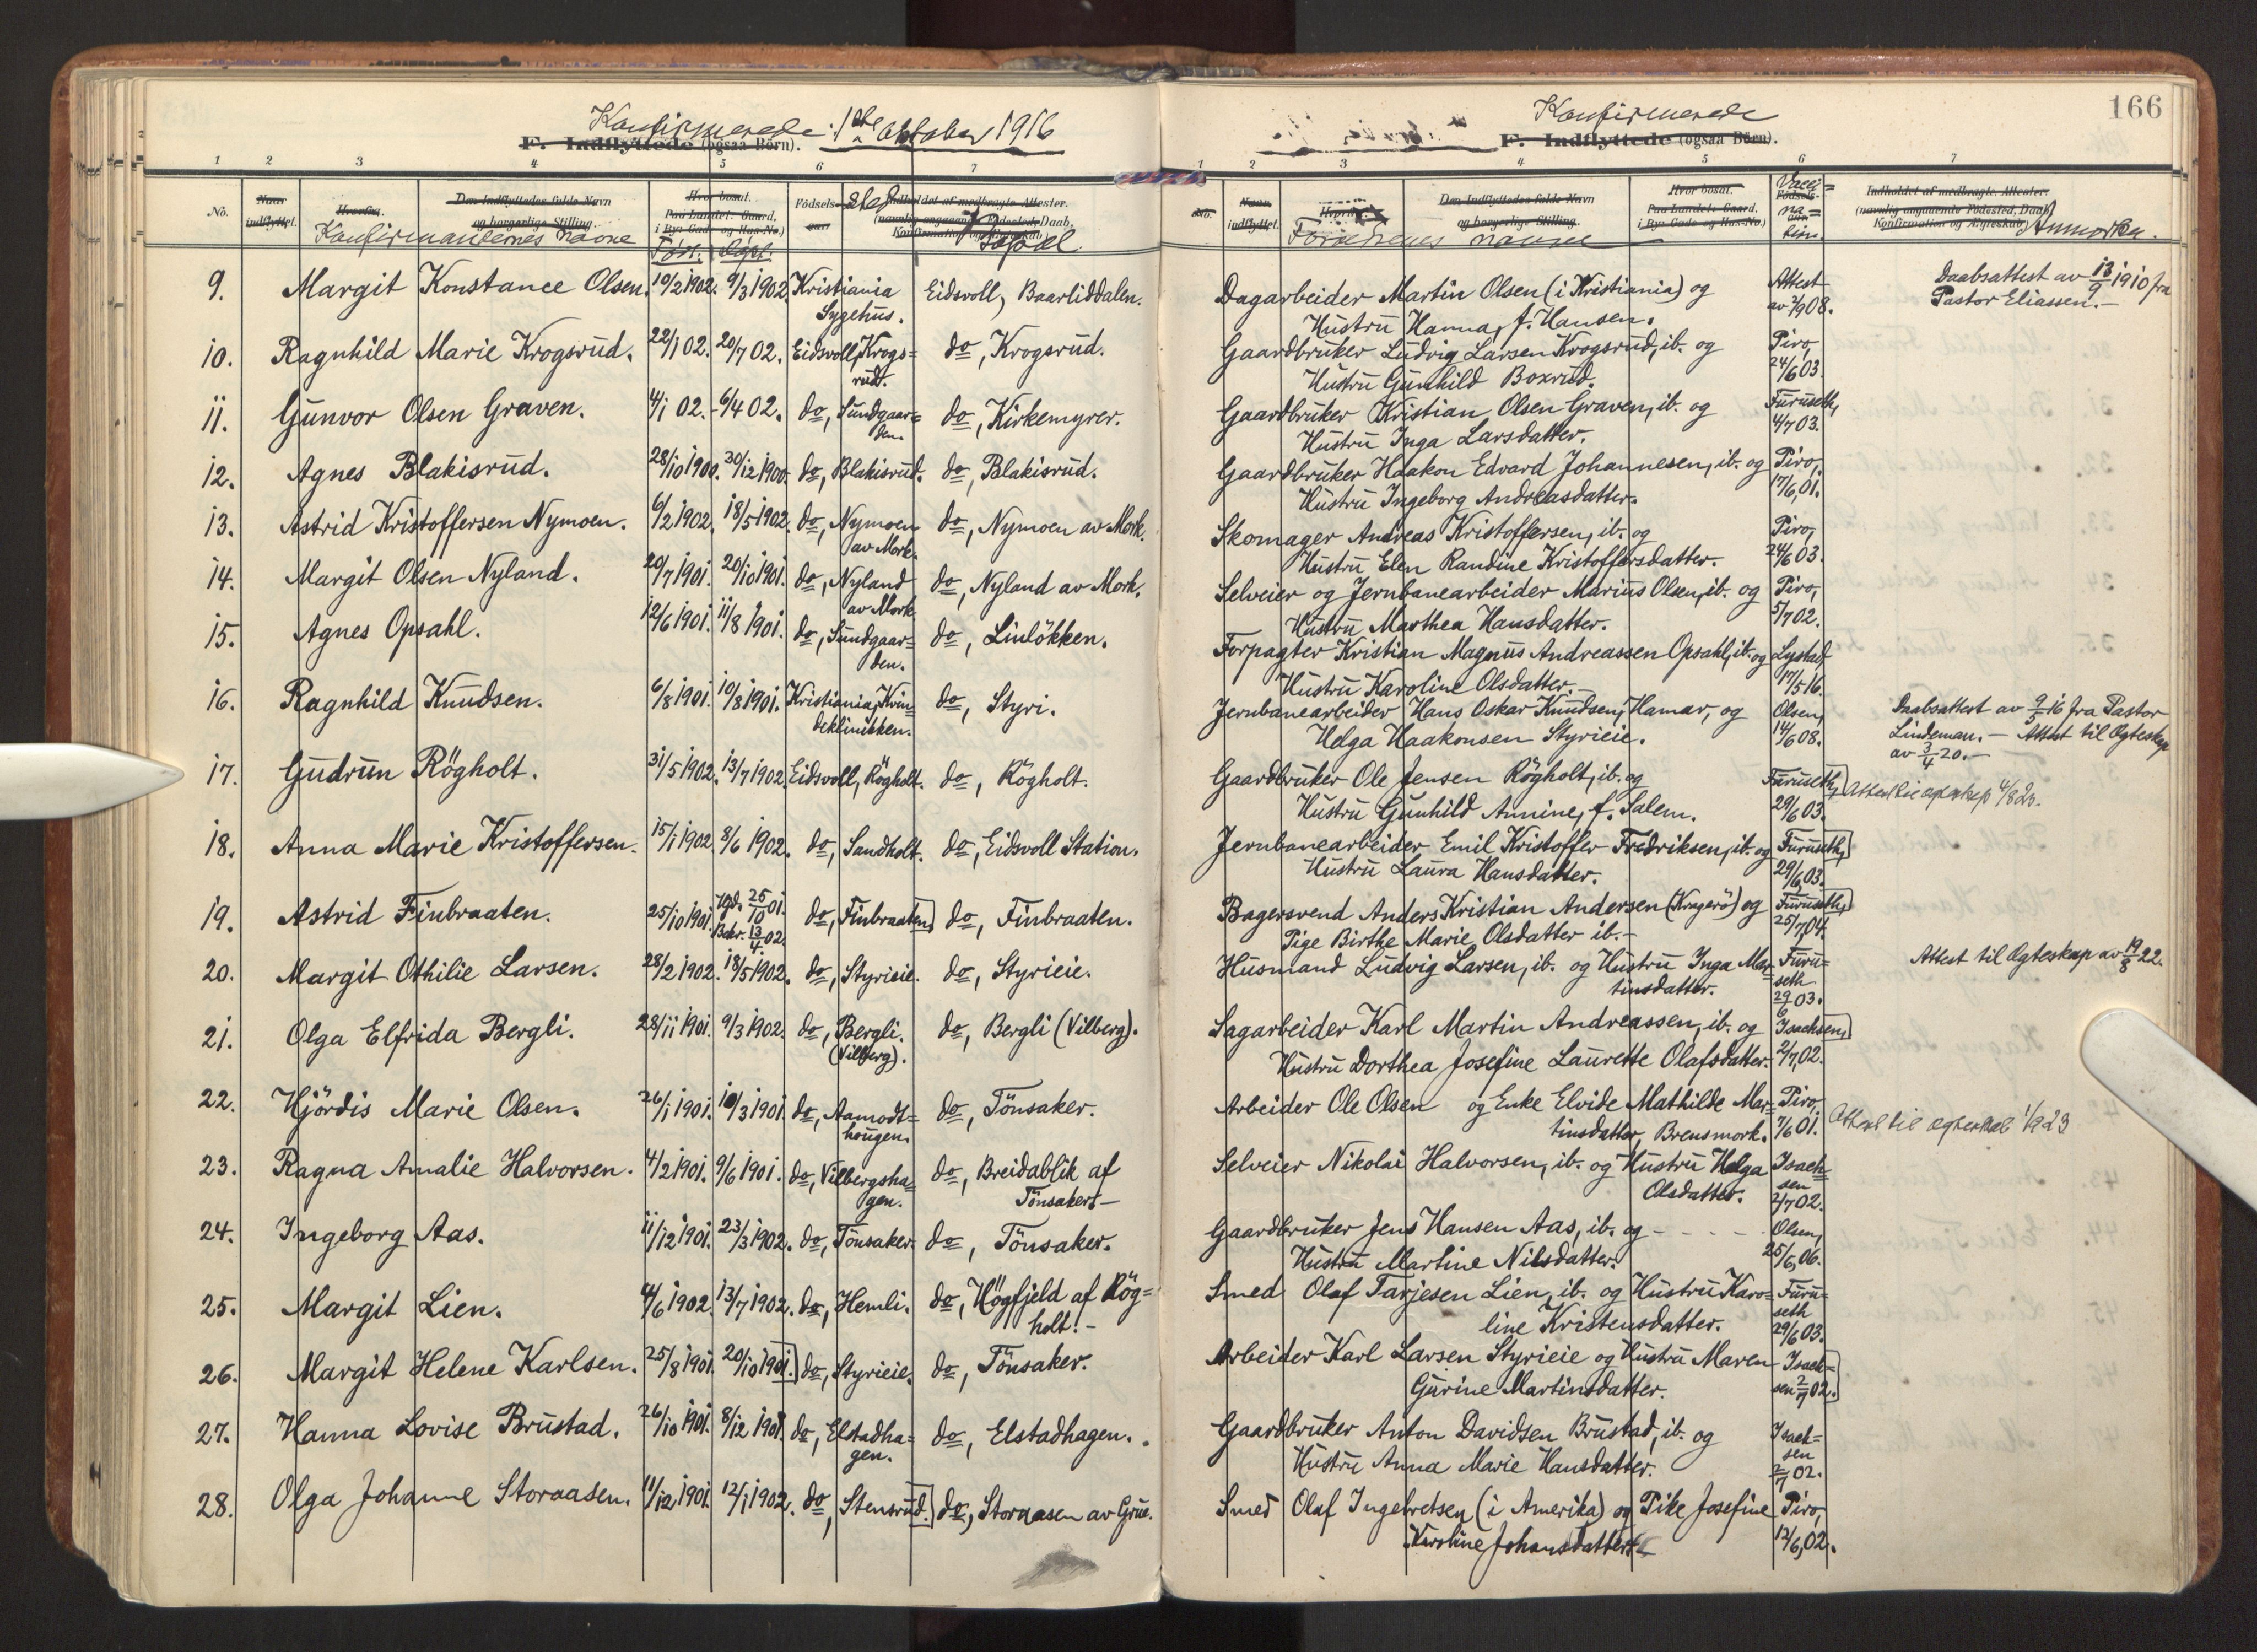 Konfirmerede 1ste oktober 1916
F. Indflyttede (ogsaa Börn).
1 2 3 4 5 6 7
No. Naar indflyttet. Hvorfra. Den Indflyttedes fulde Navn og borgerlige Stilling. Hvor bosat. Paa Landet: Gaard, i By: Gade og Hus-No.) Födsels-aar sted Indholdet af medbragte Attester. (navnlig angaaende Födested, Daab, Konfirmation og Ægteskab)
Konfirmanternes navne Födt. Döpt. Bopæl
9. Margit Konstance Olsen. 10/2 1902. 9/3 1902 Kristiania Eidsvoll, Baarliddalen.
Sygehus.
10. Ragnhild Marie Krogsrud. 22/1 02. 20/7 02. Eidsvoll, Krogs= do, Krogsrud.
rud.
11. Gunvor Olsen Graven. 4/1 02. 6/4 02. do, Sundgaar= do, Kirkemyrer.
den.
12. Agnes Blakisrud. 28/10 1900. 30/12 1900. do, Blakisrud. do, Blakisrud.
13. Astrid Kristoffersen Nymoen. 6/2 1902. 18/5 1902. do, Nymoen do, Nymoen av Mork.
av Mork.
14. Margit Olsen Nyland. 20/7 1901. 20/10 1901. do, Nyland do, Nyland av Mork.
av Mork.
15. Agnes Opsahl. 12/6 1901. 11/8 1901. do, Sundgaar= do, Linlökken.
den.
16. Ragnhild Knudsen. 6/8 1901. 10/8 1901. Kristiania, Kvin= do, Styri.
deklinikken.
17. Gudrun Rögholt. 31/5 1902. 13/7 1902 Eidsvoll, Rögholt. do, Rögholt.
18. Anna Marie Kristoffersen. 15/1 1902 8/6 1902. do, Sandholt. do, Eidsvoll Station.
19. Astrid Finbraaten. 25/10 1901. Hjd. 25/10 01. do, Finbraaten, do, Finbraaten.
Bekr. 13/4 02.
20. Margit Othilie Larsen. 28/2 1902. 18/5 1902. do, Styrieie. do, Styrieie.
21. Olga Elfrida Bergli. 28/11 1901. 9/3 1902. do, Bergli. do, Bergli (Vilberg).
(Vilberg).
22. Hjördis Marie Olsen. 26/1 1901. 10/3 1901. do, Aamodt= do, Tönsaker.
hougen.
23. Ragna Amalie Halvorsen. 4/2 1901. 9/6 1901. do, Vilbergsha= do, Breidablik af
gen. Tönsaker. -
24. Ingeborg Aas. 11/12 1901. 23/3 1902. do, Tönsaker. do, Tönsaker.
25. Margit Lien. 4/6 1902. 13/7 1902. do, Hemli. do, Högfjeld af Rög=
holt. -
26. Margit Helene Karlsen. 25/8 1901. 20/10 1901. do, Styrieie. do, Tönsaker.
27. Hanna Lovise Brustad. 26/10 1901. 8/12 1901. do, Elstadha= do, Elstadhagen.
gen.
28. Olga Johanne Storaasen. 11/12 1901. 12/1 1902. do, Stensrud. do, Storaasen av Grue.
166
Konfirmerede
F. Indflyttede (ogsaa Börn).
1 2 3 4 5 6 7
No. Naar indflyttet. Hvorfra. Den Indflyttedes fulde Navn og borgerlige Stilling. Hvor bosat. Paa Landet: Gaard, i By: Gade og Hus-No.) Födsels-aar Indholdet af medbragte Attester. (navnlig angaaende Födested, Daab, Konfirmation og Ægteskab)
Foreldrenes navne Vacci= na= tion. Anmerkn.
Dagarbeider Martin Olsen (i Kristiania) og Attest Daabsattest av 13/9 1910 fra
Hustru Hanna, f. Hansen. av 2/9 08. Pastor Eliassen. -
Gaardbruker Ludvig Larsen Krogsrud, ib. og Piro,
Hustru Gunhild Boxrud. 24/6 03.
Gaardbruker Kristian Olsen Graven, ib. og Furuseth,
Hustru Inga Larsdatter. 4/7 03.
Gaardbruker Haakon Edvard Johannesen, ib. og Piro,
Hustru Ingeborg Andreasdatter. 17/6 01.
Skomager Andreas Kristoffersen, ib. og Piro,
Hustru Elen Randine Kristoffersdatter. 24/6 03.
Selveier og Jernbanearbeider Marius Olsen, ib. og Piro,
Hustru Marthea Hansdatter. 5/7 02.
Forpagter Kristian Magnus Andreassen Opsahl, ib. og Lystad,
Hustru Karoline Olsdatter. - 17/5 16.
Jernbanearbeider Hans Oskar Knudsen, Hamar, og Olsen, Daabsattest av 9/5 16 fra Pastor
Helga Haakonsen Styrieie. 14/6 08. Lindeman. - Attest til Ægteskap
av 3/4 20. -
Gaardbruker Ole Jensen Rögholt, ib. og Furuseth, Attest til ægteskap 4/8 23.
Hustru Gunhild Annine, f. Salem. 29/6 03.
Jernbanearbeider Emil Kristoffer Fredriksen, ib. og Furuseth,
Hustru Laura Hansdatter. 29/6 03.
Bagersvend Anders Kristian Andersen (Kragerö) og Furuseth,
Pige Birthe Marie Olsdatter ib. - 25/7 04.
Husmand Ludvig Larsen, ib. og Hustru Inga Mar= Furu= Attest til Ægteskap av 19/8 22.
tinsdatter. seth 29/6 03.
Sagarbeider Karl Martin Andreassen, ib. og Isachsen,
Hustru Dorthea Josefine Laurette Olafsdatter. 2/7 02.
Arbeider Ole Olsen og Enke Elvide Mathilde Mar= Piro, Attest til ægteskab 1/9 23
tinsdatter, Brensmork. 7/6 01.
Selveier Nikolai Halvorsen, ib. og Hustru Helga Isach=
Olsdatter. sen 2/7 02.
Gaardbruker Jens Hansen Aas, ib. og - - - - Olsen,
Hustru Martine Nilsdatter. 25/6 06.
Smed Olaf Tarjesen Lien, ib. og Hustru Karo= Furu=
line Kristensdatter. seth 29/6 03.
Arbeider Karl Larsen Styrieie og Hustru Maren Isach=
Gurine Martinsdatter. sen 2/7 02.
Gaardbruker Anton Davidsen Brustad, ib. og Isach=
Hustru Anna Marie Hansdatter. sen 2/7 02.
Smed Olaf Ingebretsen (i Amerika) og Pike Josefine Piro,
Karoline Johansdatter. 12/6 02.